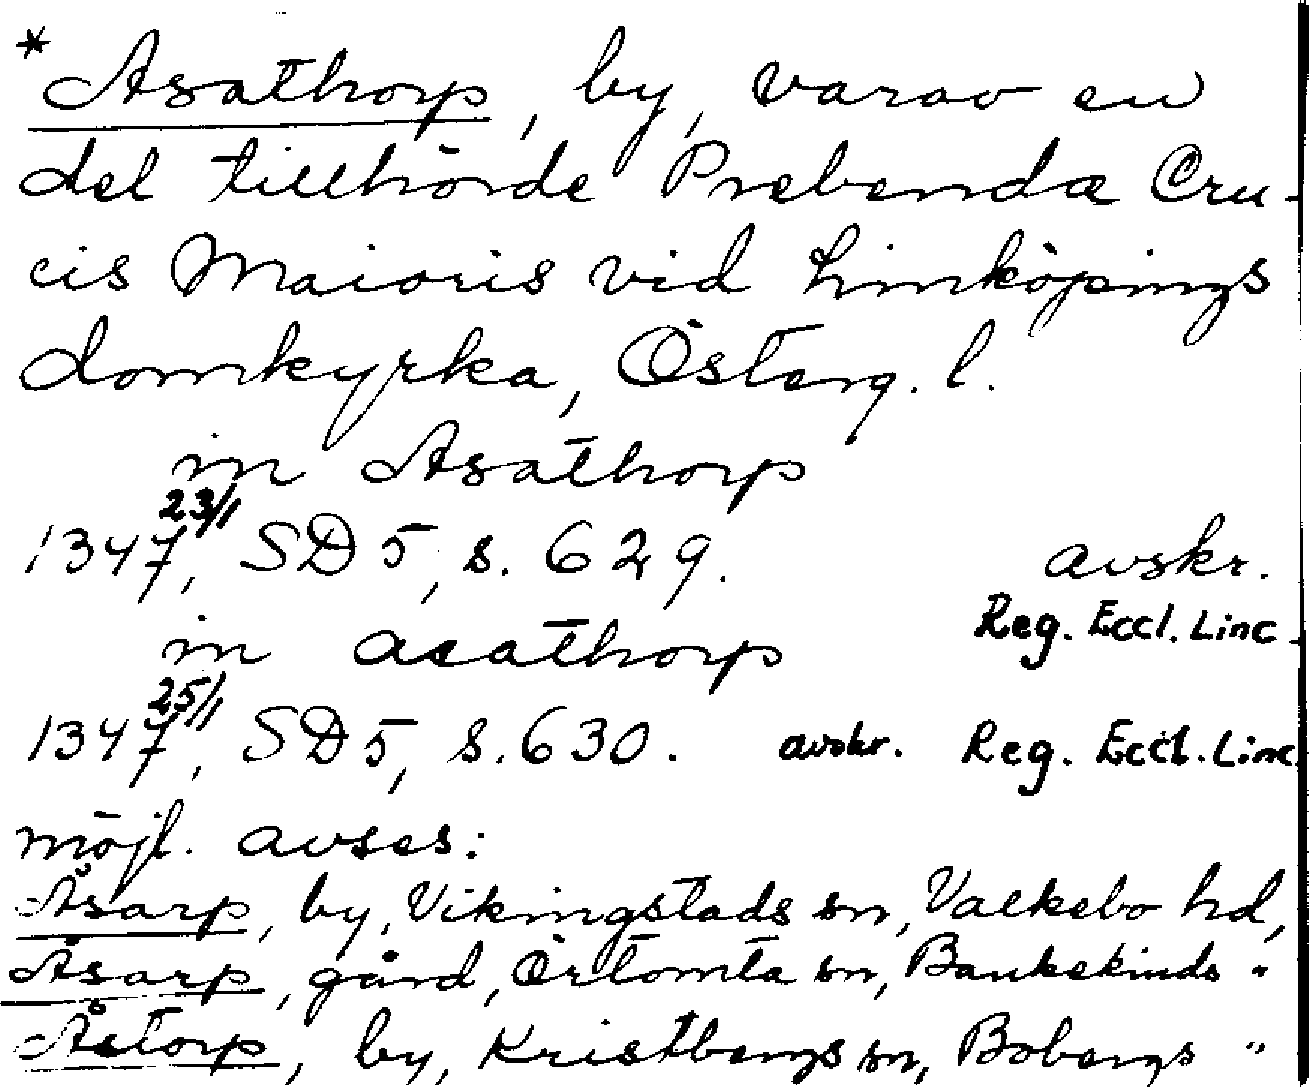 *Asathorp, by, varav en
del tillhörde Prebenda Cru-
cis Maioris vid Linköpings
domkyrka, Österg. l.
in Asathorp
1347 23/1, SD 5, s. 629. avskr.
Reg. Eccl. Linc.
in asathorp
1347 25/1, SD 5, s. 630. avskr. Reg. Eccl. Linc.
möjl. avses:
Åsarp, by, Vikingstads sn, Valkebo hd,
Åsarp, gård, Örtomta sn, Bankekinds "
Åstorp, by, Kristbergs sn, Bobergs "